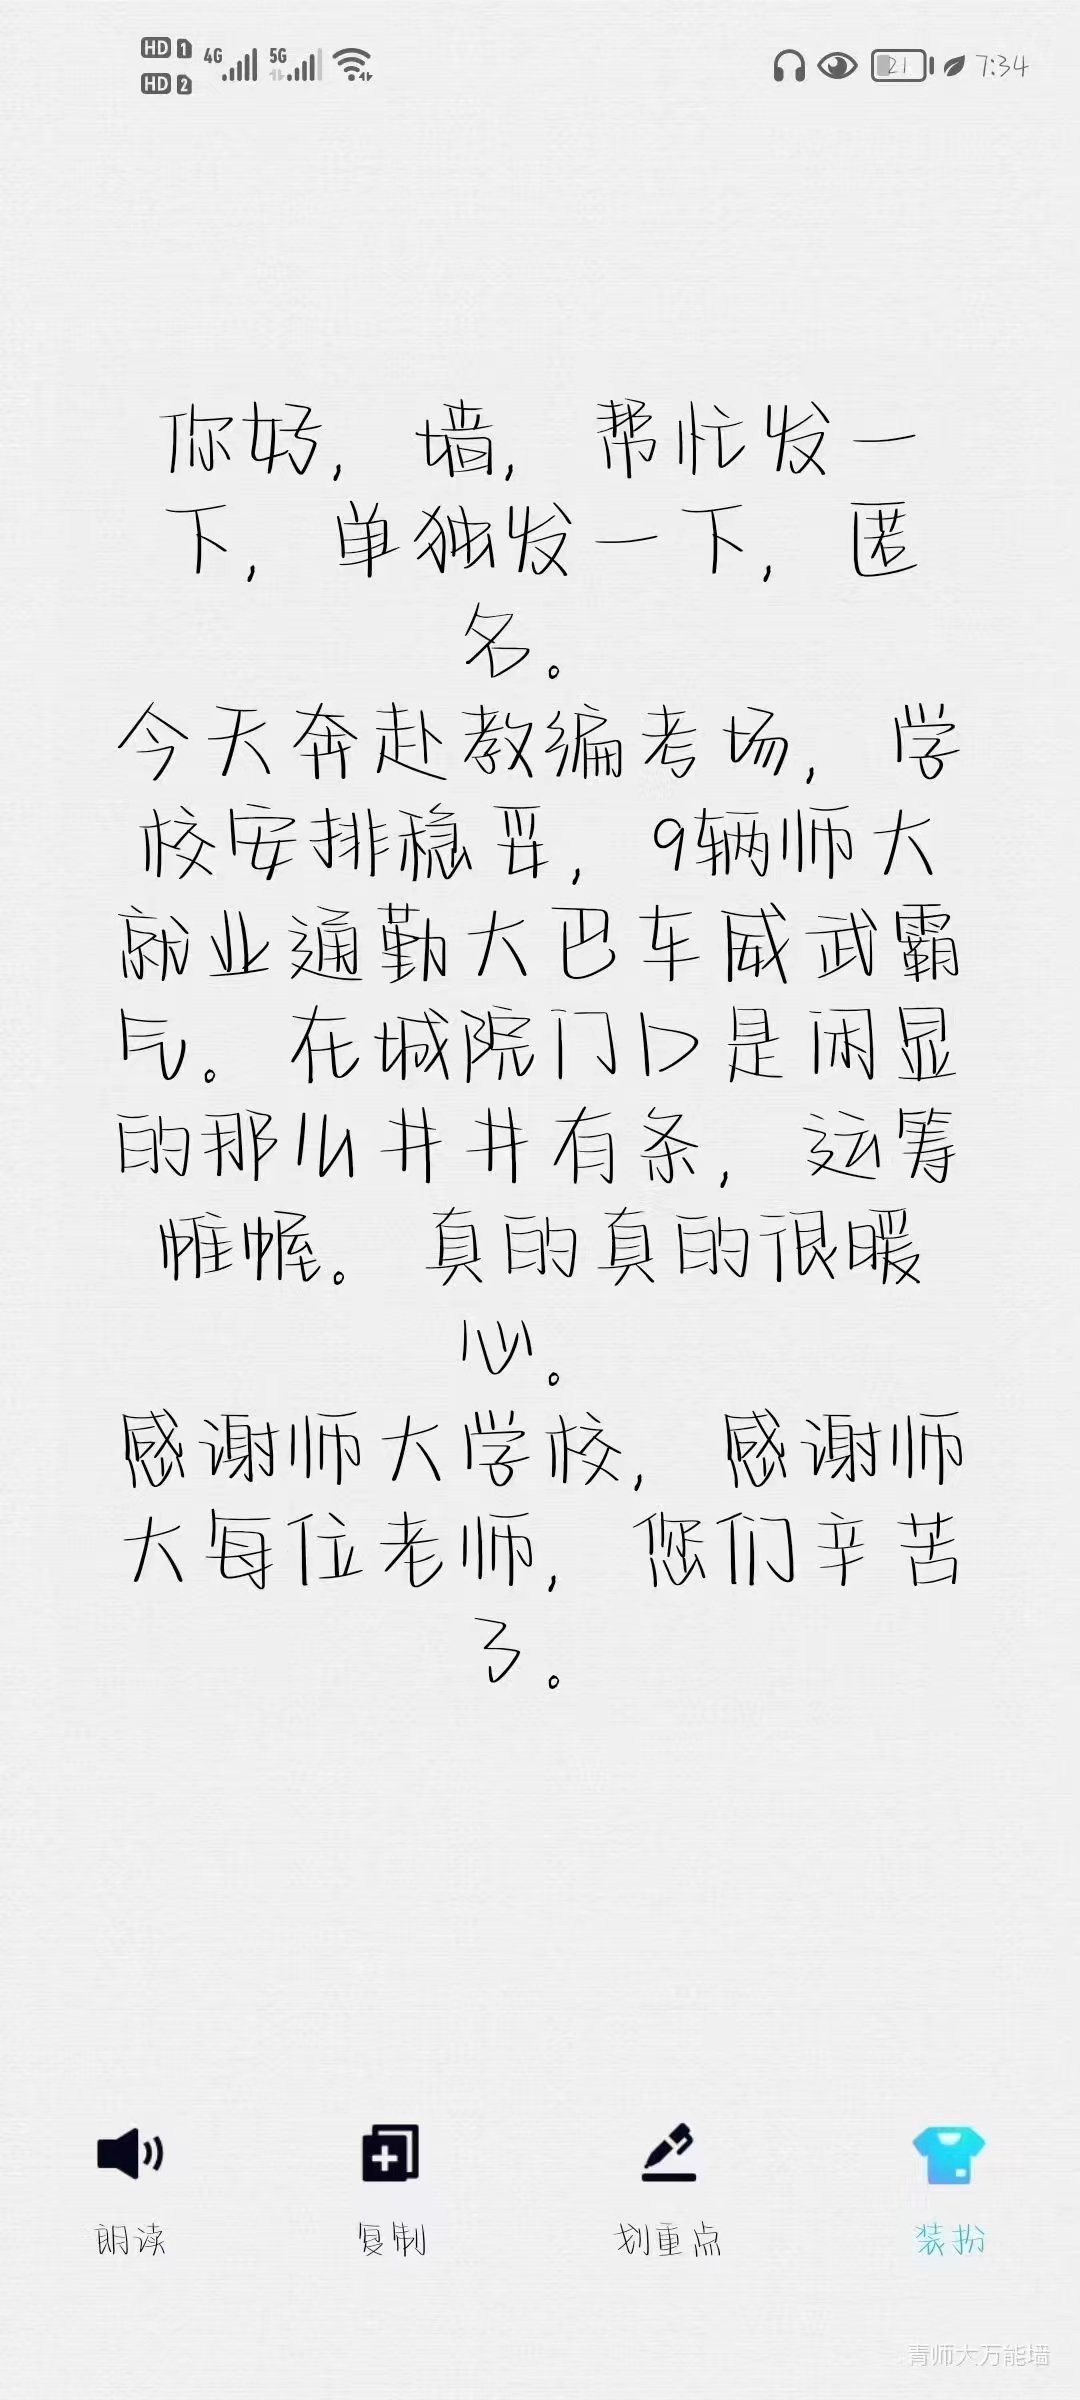 HD 1 4G 5G 21 7:34
HD 2
你好，墙，帮忙发一
下，单独发一下，匿
名。
今天奔赴教编考场，学
校安排稳妥，9辆师大
就业通勤大巴车威武霸
气。在城院门口是闲显
的那么井井有条，运筹
帷幄。真的真的很暖
心。
感谢师大学校，感谢师
大每位老师，您们辛苦
了。
朗读 复制 划重点 装扮
青师大万能墙